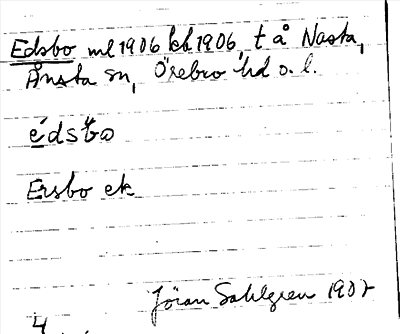 Edsbo ml 1906 kb 1906, t å Nasta,
Ånsta sn, Örebro hd o. l.
édsbo
Ersbo ek
Jöran Sahlgren 1907
4